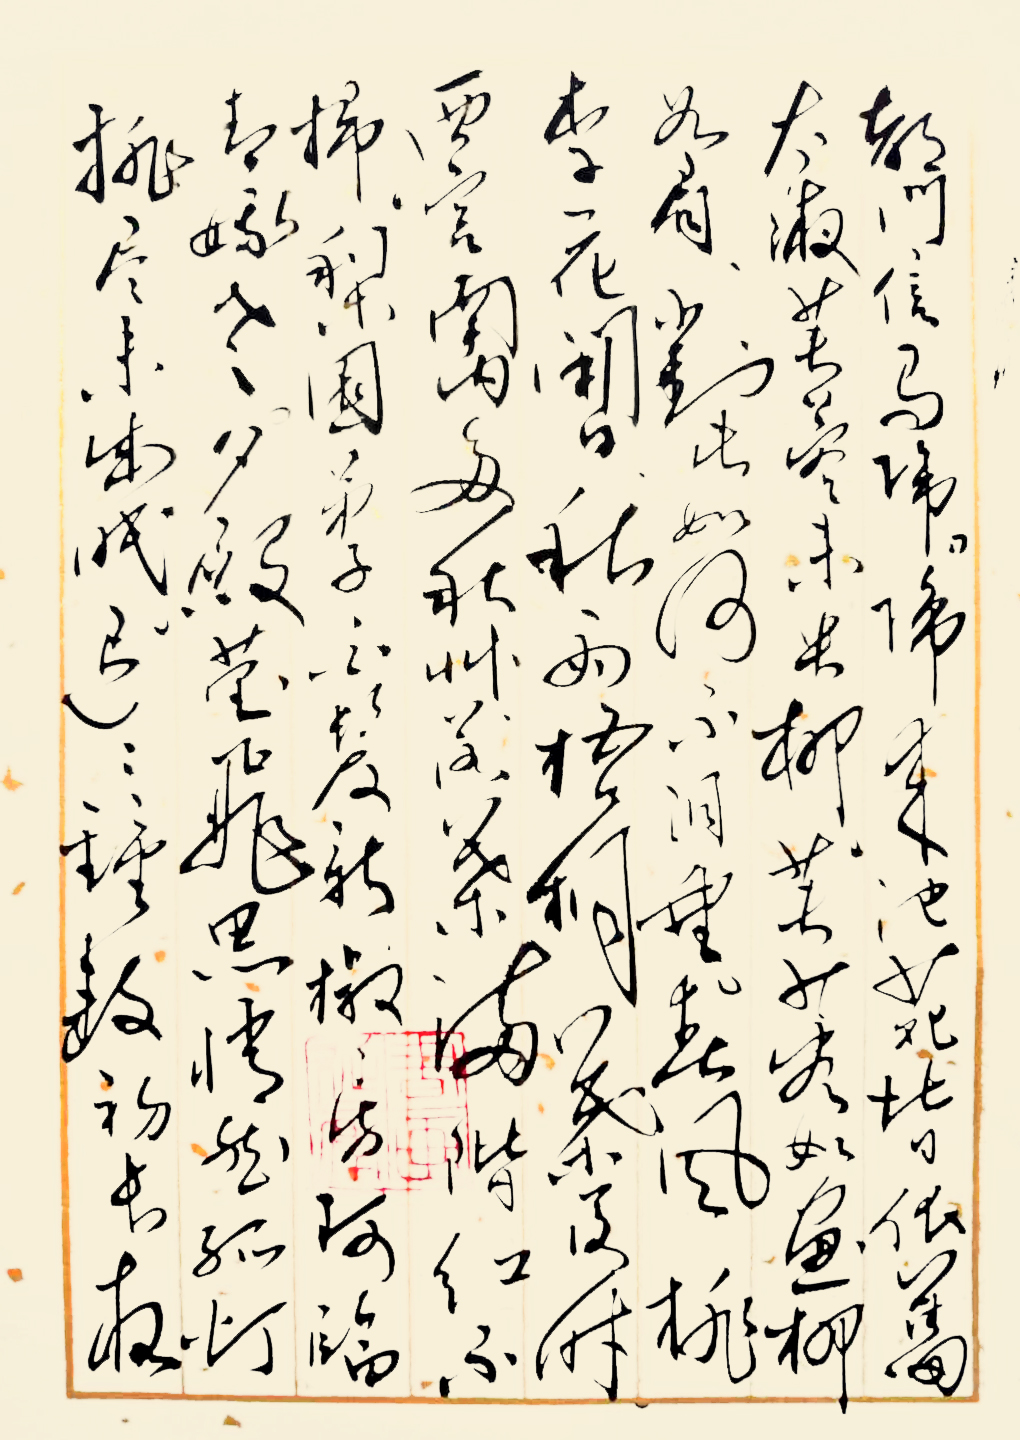 都門信馬歸歸來池苑皆依舊
太液芙蓉未央柳芙蓉如面柳
如眉對此如何不淚垂春風桃
李花開日秋雨梧桐葉落時
西宮南內多秋艸落葉滿階紅不
掃梨園弟子白髮新椒房阿監
青娥老夕殿螢飛思悄然孤灯
挑尽未成眠遲〻鐘鼓初長夜